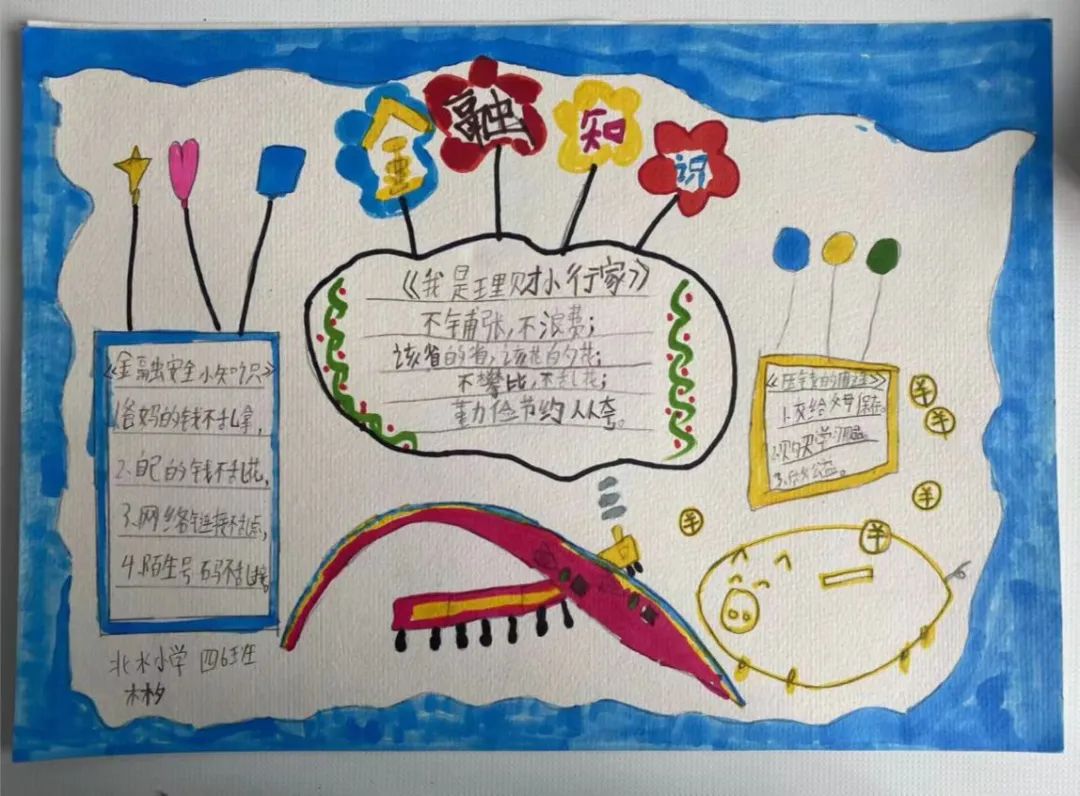 金融知识
《我是理财小行家》
不铺张,不浪费;
该省的省,该花的花;
不攀比,不乱花;
勤力俭节约人人夸。
《金融安全小知识》
1.爸妈的钱不乱拿,
2.自己的钱不乱花,
3.网络链接不乱点,
4.陌生号码不乱接。
1.交给父母保存。
2.购买学习用品
3.做公益。
羊
羊
羊
羊
羊
北水小学 四6班